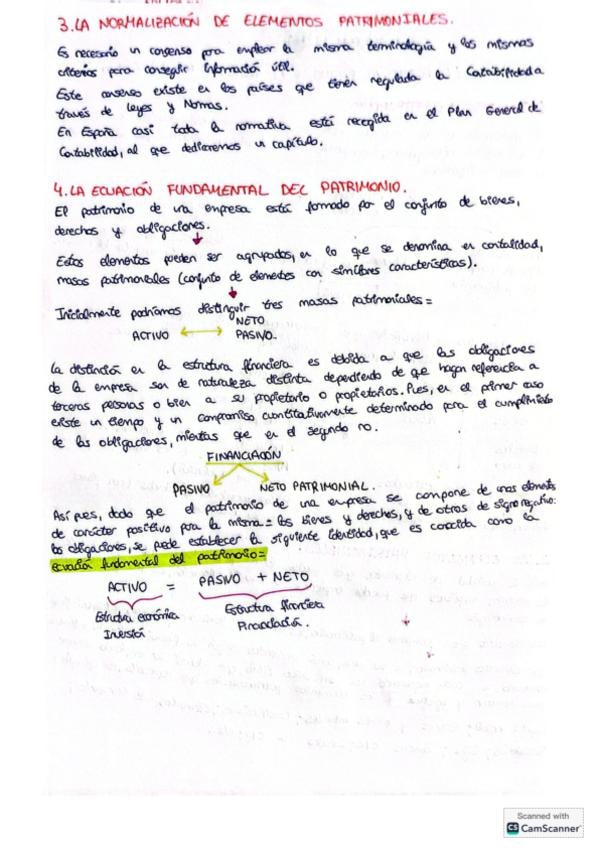 3. LA NORMALIZACIÓN DE ELEMENTOS PATRIMONIALES.
Es necesario un consenso para emplear la misma terminología y los mismos
criterios para conseguir información útil.
Este consenso existe en los países que tienen regulada la Contabilidad a
través de Leyes y Normas.
En España casi toda la normativa está recogida en el Plan General de
Contabilidad, al que dedicaremos un capítulo.
4. LA ECUACIÓN FUNDAMENTAL DEL PATRIMONIO.
El patrimonio de una empresa está formado por el conjunto de bienes,
derechos y obligaciones.
Estos elementos pueden ser agrupados, en lo que se denomina en contalidad,
masas patrimoniales (conjunto de elementos con similares características).
Inicialmente podríamos distinguir tres masas patrimoniales=
NETO
ACTIVO PASIVO.
La distinción en la estructura financiera es debida a que las obligaciones
de la empresa son de naturaleza distinta dependiendo de que hagan referencia a
terceras personas o bien a su propietario o propietarios. Pues, en el primer caso
existe un tiempo y un compromiso cuantitativamente determinado para el cumplimiento
de las obligaciones, mientras que en el segundo no.
FINANCIACIÓN
PASIVO NETO PATRIMONIAL.
Así pues, dado que el patrimonio de una empresa se compone de unos elementos
de carácter positivo para la misma= los bienes y derechos, y de otros de signo negativo:
las obligaciones, se puede establecer la siguiente identidad, que es conocida como la
ecuación fundamental del patrimonio=
ACTIVO = PASIVO + NETO
Estructura económica Estructura financiera
Inversión Financiación.
Scanned with
CS CamScanner